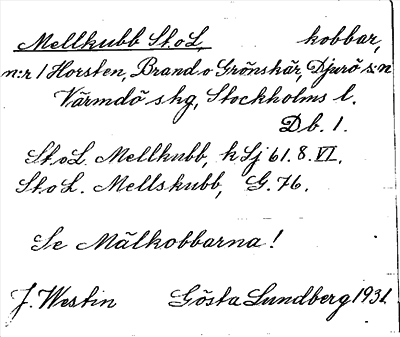 Mellkubb St.o L. kobbar,
n:r 1 Horsten, Brand o Grönskär, Djurö s:n
Värmdö skg, Stockholms l.
Db. 1.
St.o L. Mellkubb, k Sj 61. 8. VI.
St.o L. Mellskubb, G. 76.
Se Mälkobbarna!
J. Westin Gösta Lundberg 1931.